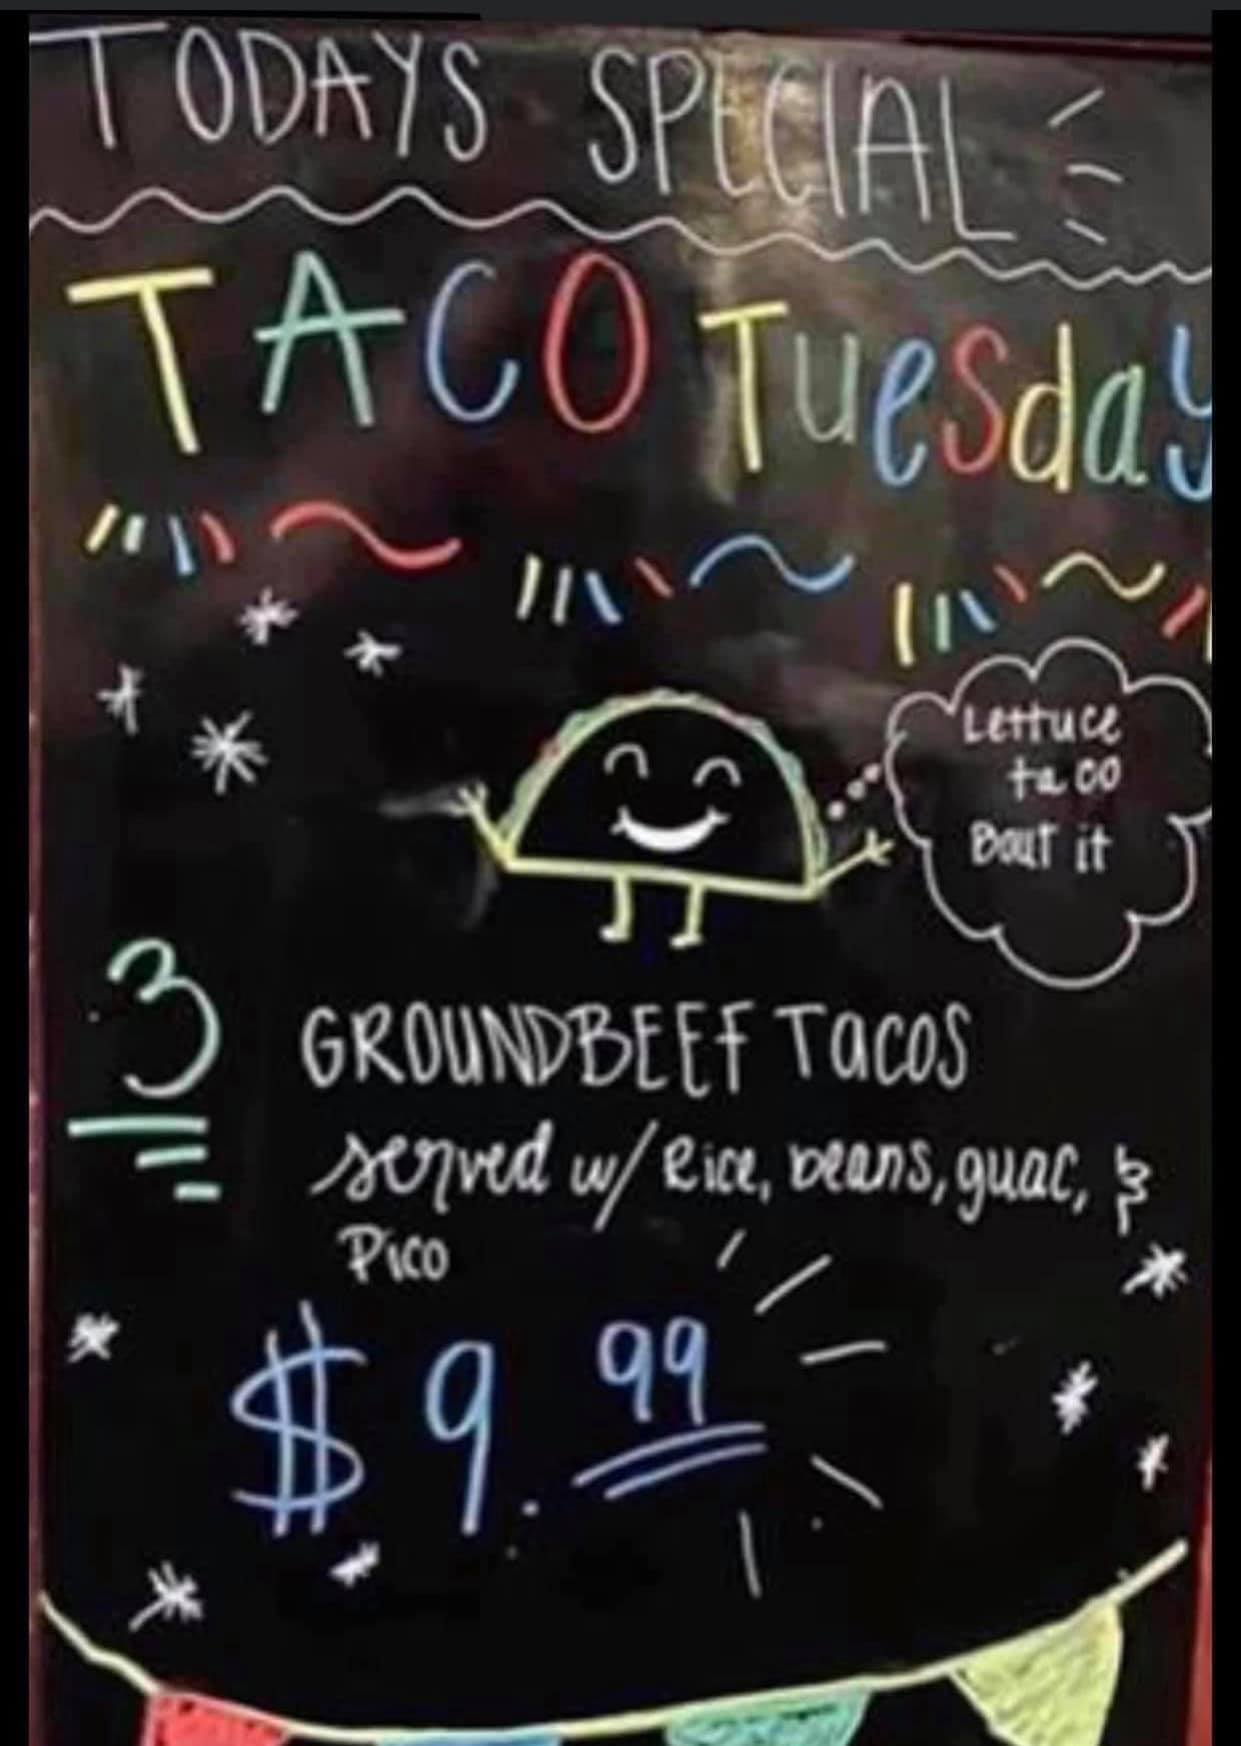 TODAYS SPECIAL
TACO Tuesday
Lettuce
taco
Bout it
3 GROUNDBEEF Tacos
served w/ Rice, beans, guac, &
Pico
$9.99